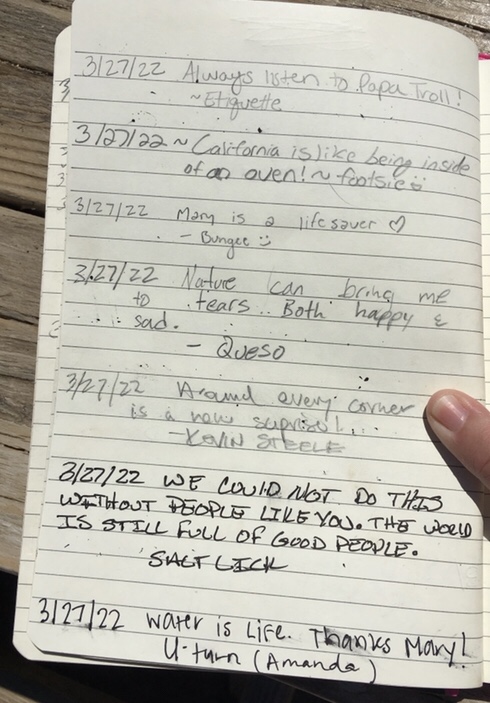 3/27/22 Always listen to Papa Troll!
~Etiquette
3/27/22 ~ California is like being inside
of an oven! ~ footsie
3/27/22 Mary is a lifesaver ♡
- Bungee :)
3/27/22 Nature can bring me
to tears.. Both happy &
sad.
- Queso
3/27/22 Around every corner
is a new suprise!...
-KEVIN STEELE
3/27/22 WE COULD NOT DO THIS
WITHOUT PEOPLE LIKE YOU. THE WORLD
IS STILL FULL OF GOOD PEOPLE.
SALT LICK
3/27/22 Water is Life. Thanks Mary!
U-turn (Amanda)